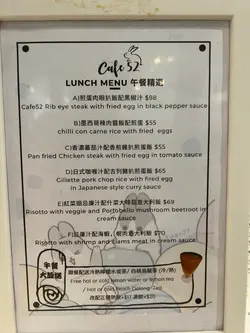 Cafe 52
LUNCH MENU 午餐精選
A)煎蛋肉眼扒飯配黑椒汁 $98
Cafe52 Rib eye steak with fried egg in black pepper sauce
B)墨西哥辣肉醬飯配煎蛋 $55
chilli con carne rice with fried eggs
C)香濃蕃茄汁配香煎雞扒煎蛋飯 $55
Pan fried Chicken steak with fried egg in tomato sauce
D)日式咖喱汁配吉列豬扒煎蛋飯 $65
Gillette pork chop rice with fired egg
in Japanese style curry sauce
E)紅菜頭忌廉汁配什菜大啡菇意大利飯 $69
Risotto with veggie and Portobello mushroom beetroot in
cream sauce
F)忌廉汁配海蝦, 蜆肉意大利飯 $70
Risotto with shrimp and clams meat in cream sauce
午餐
大放送
隨餐配送冷熱檸檬水或茶/
(冷/熱)
Free hot or cold lemon water or lemon tea
/ Hot or cold Peach Oolong Tea